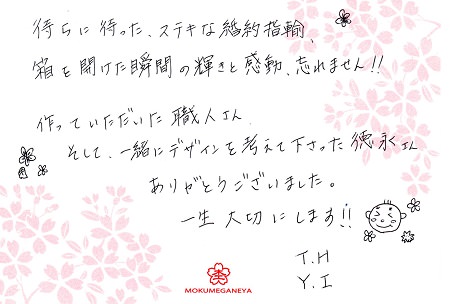 待ちに待った、ステキな婚約指輪、
箱を開けた瞬間の輝きと感動、忘れません!!
作っていただいた職人さん、
そして、一緒にデザインを考えて下さった徳永さん
ありがとうございました。
一生大切にします!!
T.H
Y.I
MOKUMEGANEYA